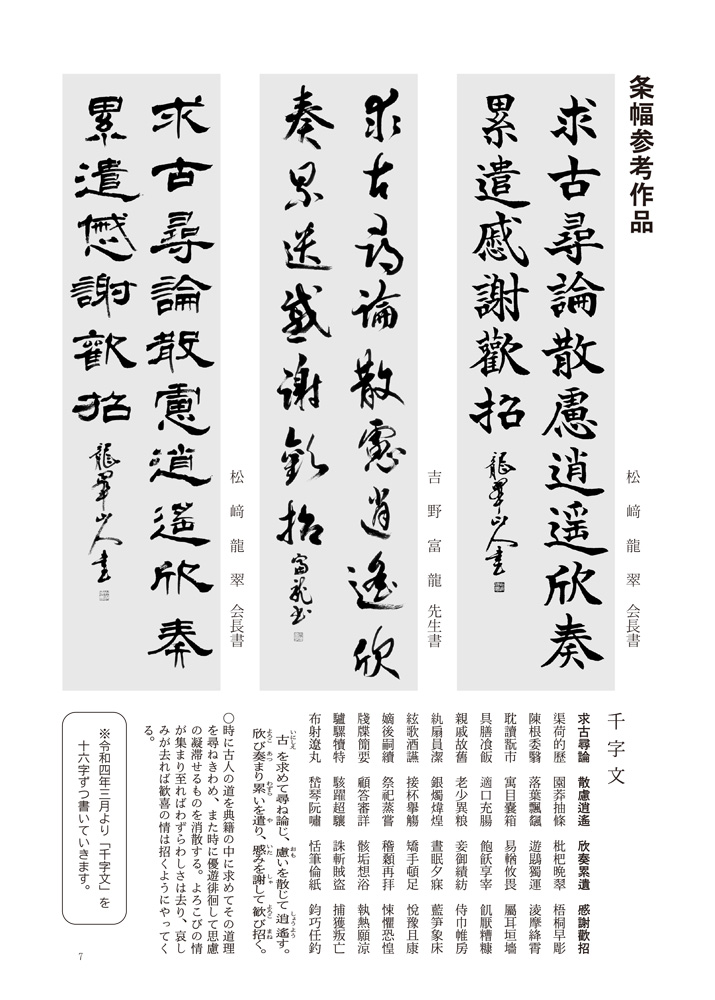 条幅参考作品
求古尋論散慮逍遥欣奏
累遣慼謝歡招
龍翠山人書
松﨑龍翠 会長書
求古尋論散慮逍遙欣
奏累遣慼謝歡招
富龍書
吉野富龍 先生書
求古尋論散慮逍遙欣奏
累遣慼謝歡招
龍翠山人書
松﨑龍翠 会長書
千字文
求古尋論 散慮逍遙 欣奏累遣 慼謝歡招
渠荷的歴 園莽抽條 枇杷晩翠 梧桐早彫
陳根委翳 落葉飄颻 遊鵾獨運 淩摩絳霄
耽讀翫市 寓目囊箱 易輶攸畏 屬耳垣墻
具膳飡飯 適口充腸 飽飫享宰 飢厭糟糠
親戚故舊 老少異粮 妾御績紡 侍巾帷房
紈扇員潔 銀燭煒煌 晝眠夕寐 藍笋象床
絃歌酒讌 接杯擧觴 矯手頓足 悅豫且康
嫡後嗣續 祭祀蒸嘗 稽顙再拝 悚懼恐惶
牋牒簡要 顧答審詳 骸垢想浴 執熱願涼
驢騾犢特 駭躍超驤 誅斬賊盗 捕獲叛亡
布射遼丸 嵆琴阮嘯 恬筆倫紙 鈞巧任釣
古を求めて尋ね論じ、慮いを散じて逍遙す。
いにしえ おも しょうよう
欣び奏まり累いを遣り、慼みを謝して歓び招く。
よろこ あつ わずら や いた しゃ よろこ まね
○時に古人の道を典籍の中に求めてその道理
を尋ねきわめ、また時に優遊徘徊して思慮
の凝滞せるものを消散する。よろこびの情
が集まり至ればわずらわしさは去り、哀し
みが去れば歓喜の情は招くようにやってく
る。
※令和四年三月より「千字文」を
十六字ずつ書いていきます。
7